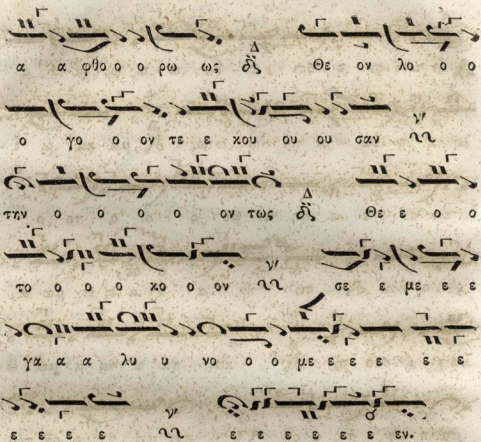 α α φθο ο ο ρω ως Δ Θε ον λο ο ο
ο γο ο ον τε ε κου ου ου σαν γ'
την ο ο ο ο ον τως Δ Θε ε ο ο
το ο ο ο κο ο ον γ' σε ε με ε ε
γα α α λυ υ νο ο ο με ε ε ε ε ε
ε ε ε ε γ' ε ε ε ε ε ε ε εν.